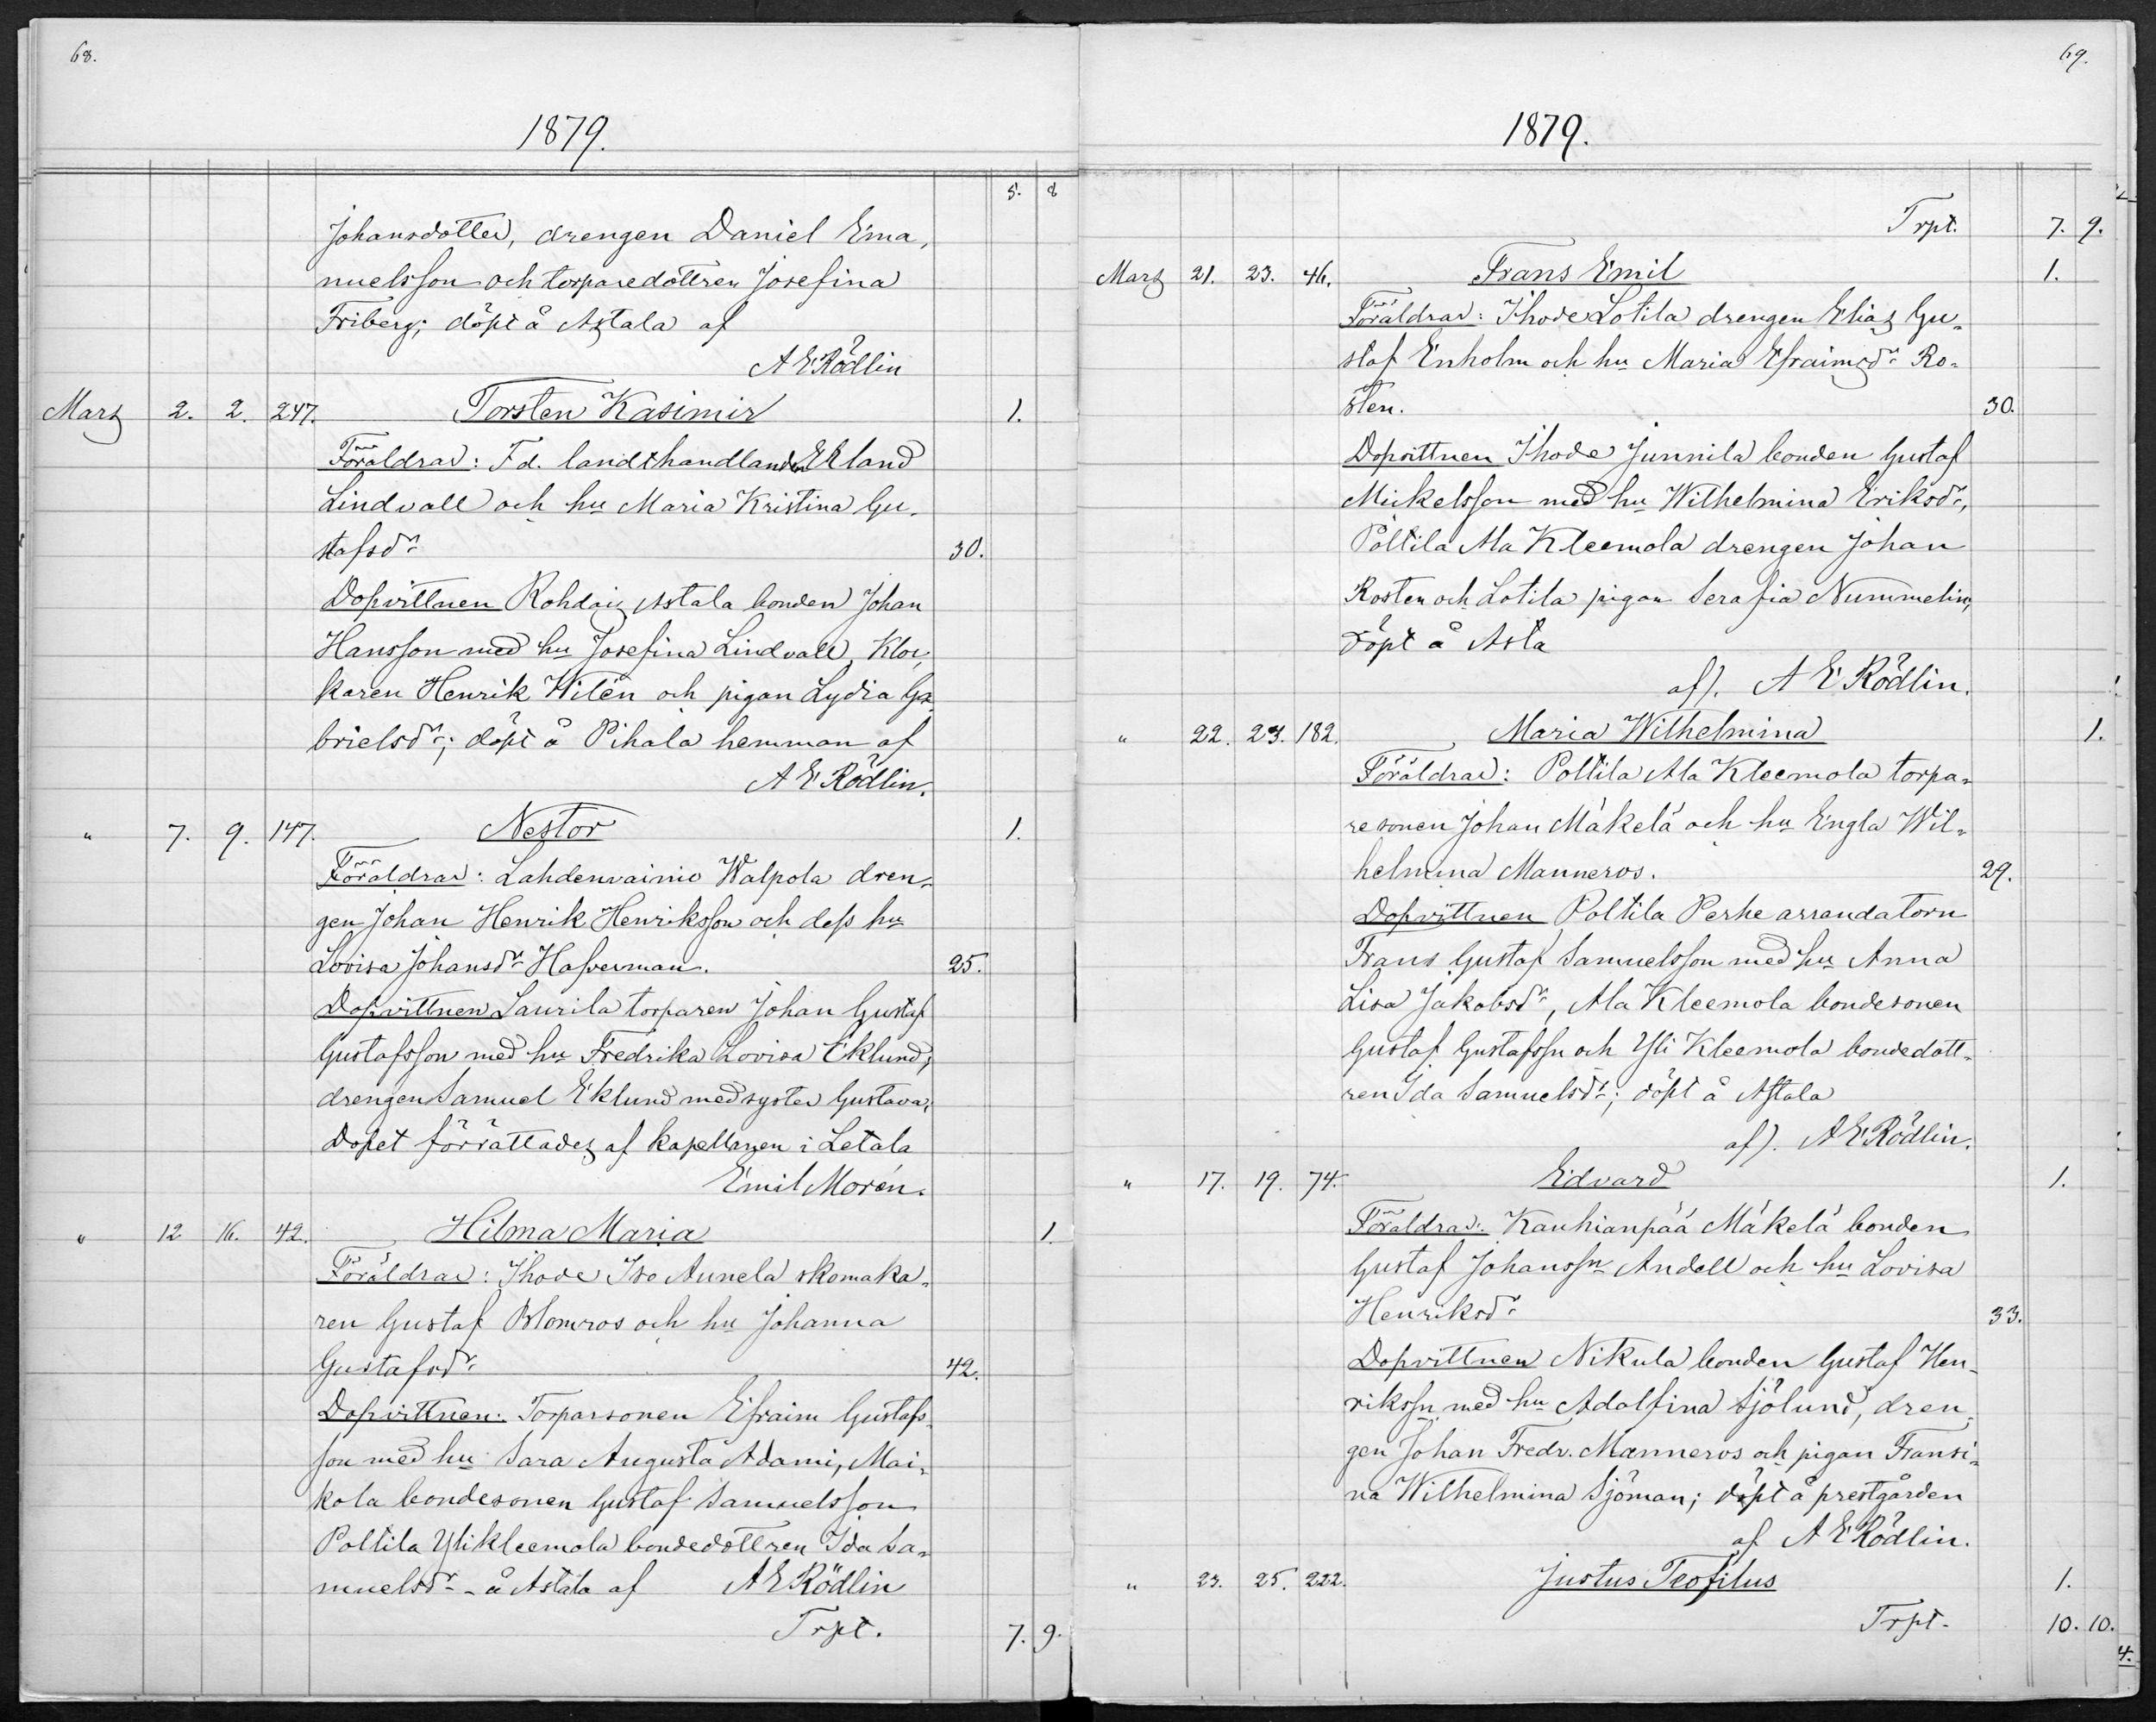 68.
1879.
5. 8
Johansdotter, drengen Daniel Ema,
nuelsson och torparedottren Josefina
Friberg; döpt å Astala af
A E Rödlin
Mars 2. 2. 247. Torsten Kasimir 1.
Föräldrar: F d. landthandlanden Erland
Lindvall och hu Maria Kristina Gu,
stafsdr 30.
Dopvittnen Rohdais Astala bonden Johan
Hansson med hu Josefina Lindvall, Kloc,
karen Henrik Wilén och pigan Lydia Ga,
brielsdr; döpt å Pihala hemman af
A E Rödlin.
" 7. 9. 147. Nestor 1.
Föräldrar: Lahdenvainio Walpola dren,
gen Johan Henrik Henriksson och dess hu
Lovisa Johansdr Hafverman. 25.
Dopvittnen Laurila torparen Johan Gustaf
Gustafsson med hu Fredrika Lovisa Eklund,
drengen Samuel Eklund med syster Gustava,
Dopet förrättades af kapellanen i Letala
Emil Morén.
" 12 16. 42. Hilma Maria 1.
Föräldrar: Ihode Iso Aunela skomaka,
ren Gustaf Blomros och hu Johanna
Gustafsdr 42.
Dopvittnen: Torparsonen Efraim Gustafs,
son med hu Sara Augusta Adami, Mai,
kola bondesonen Gustaf Samuelsson
Poltila Ylikleemola bondedottren Ida Sa,
muelsdr - å Astala af A E Rödlin
Trpt. 7. 9.
69.
1879.
Trpt. 7. 9.
Mars 21. 23. 46. Frans Emil 1.
Föräldrar: Ihode Lotila drengen Elias Gu,
staf Enholm och hu Maria Efraimsdr Ro-
sten. 30.
Dopvittnen Ihode Junnila bonden Gustaf
Mickelsson med hu Wilhelmina Eriksdr,
Poltila Ala Kleemola drengen Johan
Rosten och Lotila pigan Serafia Nummelin,
döpt å Asta
af). A E Rödlin.
" 22. 23. 182. Maria Wilhelmina 1.
Föräldrar: Poltila Ala Kleemola torpa,
resonen Johan Mäkelä och hu Engla Wil,
helmina Manneros. 29.
Dopvittnen Poltila Perhe arrendatorn
Frans Gustaf Samuelsson med hu Anna
Lisa Jakobsdr, Ala Kleemola bondesonen
Gustaf Gustafssn och Yli Kleemola bondedott,
ren Ida Samuelsdr; döpt å Astala
af). A E Rödlin.
" 17. 19. 74. Edvard 1.
Föräldrar: Kauhianpää Mäkelä bonden
Gustaf Johanssn Andell och hu Lovisa
Henriksdr 33.
Dopvittnen Nikula bonden Gustaf Hen,
rikssn med hu Adolfina Sjölund, dren,
gen Johan Fredr. Manneros och pigan Fransi,
na Wilhelmina Sjöman; döpt å prestgården
af A E Rödlin.
" 23. 25. 222. Justus Teofilus 1.
Trpt. 10. 10.
4.